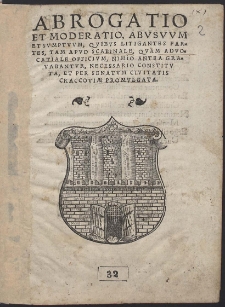 ABROGATIO
ET MODERATIO, ABVSVVM
ET SVMPTVVM, QVIBVS LITIGANTES PAR-
TES, TAM APVD SCABINALE, QVÀM ADVO-
CATIALE OFFICIVM, NIMIO ANTEA GRA-
VABANTVR, NECESSARIO CONSTITV
TA, ET PER SENATVM CIVITATIS
CRACCOVIÆ PROMVLGATA.
32